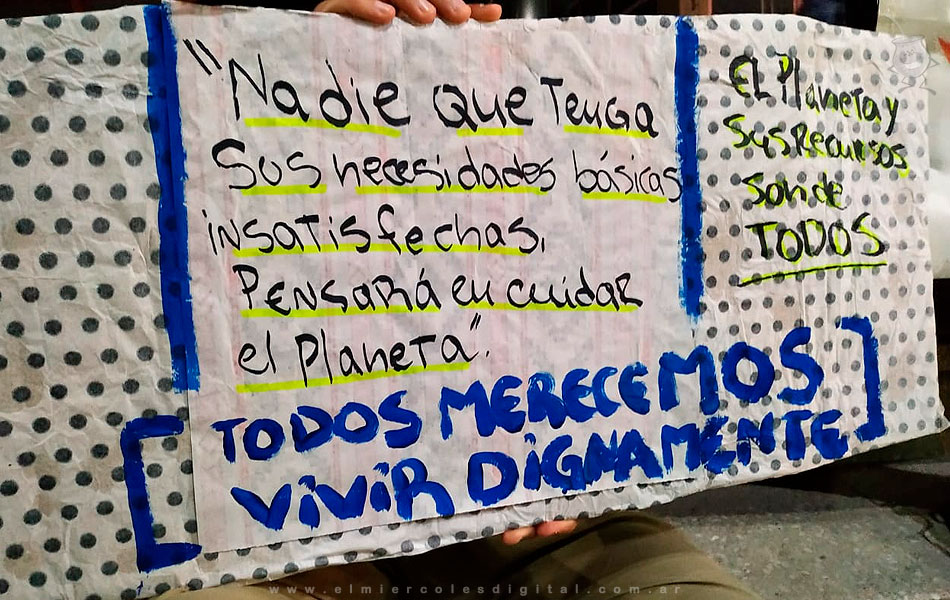 "Nadie que Tenga
Sus necesidades básicas
insatisfechas,
Pensará en cuidar
el Planeta".
EL Planeta y
Sus Recursos
son de
TODOS
[TODOS MERECEMOS
VIVIR DIGNAMENTE]
www.elmiercolesdigital.com.ar